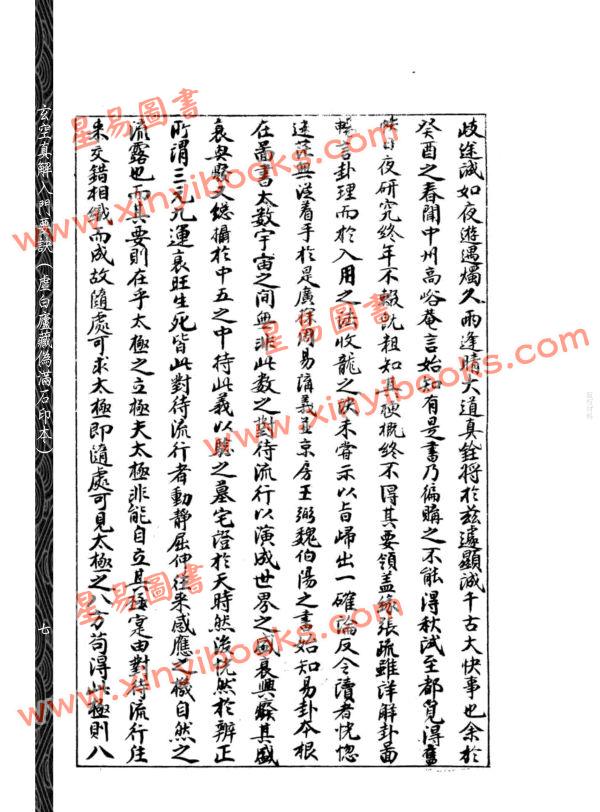 歧途誠如夜遊遇燭久雨逢晴大道真銓將於茲遽顯誠千古大快事也余於
癸酉之春聞中州高峪菴言始知有是書乃徧購之不能得秋試至都覓得舊
日夜研究終年不輟祇粗知其梗概終不得其要領蓋緣張疏雖詳解卦畐
暢言卦理而於入用之法收龍之訣未嘗示以旨歸出一確論反令讀者恍惚
迷茫無從着手於是廣徐周易講義並京房王弼魏伯陽之書始知易卦本根
在畐書太數宇宙之間無非此數之對待流行以演成世界之盛衰興癈其盛
衰與癈又總攝於中五之中待此義以驗之墓宅證於天時然後恍然於辨正
所謂三元九運衰旺生死皆此對待流行者動靜屈伸往來感應之機自然之
流露也而其要則在乎太極之立極夫太極非能自立其極寔由對待流行往
來交錯相織而成故隨處可求太極即隨處可見太極之八方苟得此極則八
玄空真解入門要訣（虛白廬藏偽滿石印本）
七
星易圖書
www.xinyibooks.com
星易圖書
www.xinyibooks.com
星易圖書
www.xinyibooks.com